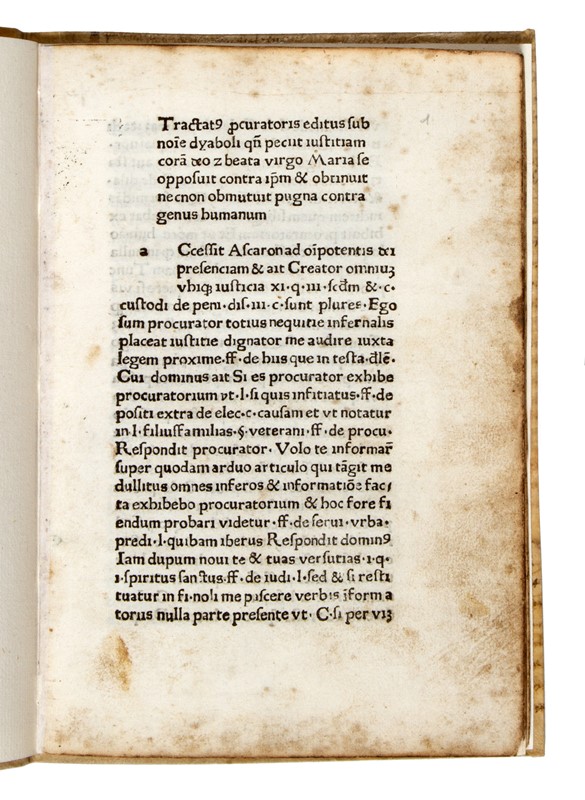 Tractatꝰ ꝓcuratoris editus sub
noīe dyaboli qñ peciit iusticiam
corā deo ⁊ beata virgo Maria se
opposuit contra ip̄m & obtinuit
necnon obmutuit pugna contra
genus humanum
1
a Ccessit Ascaron ad oīpotentis dei
presenciam & ait Creator omniuꝫ
vbiqꝫ iusticia xi·q·iii·scd̄m &·c·
custodi de peni·dis·iii·c·sunt plures· Ego
sum procurator totius nequitie infernalis
placeat iustitie dignator me audire iuxta
legem proxime·ff·de hiis que in testa·dlē·
Cui dominus ait Si es procurator exhibe
procuratorium vt·l·si quis infitiatus·ff·de
positi extra de elec·c·causam et vt notatur
in·l·filiusfamilias·§·veterani·ff·de procu·
Respondit procurator· Volo te informar̄
super quodam arduo articulo qui tāgit me
dullitus omnes inferos & informatiōe fac/
ta exhibebo procuratorium & hoc fore fi
endum probari videtur·ff·de serui·vrba·
predi·l·qui bam iberus Respondit dominꝰ
Iam dupum noui te & tuas versutias·i·q·
i·spiritus sanctus·ff·de iudi·l·sed & si resti
tuatur in fi·noli me pascere verbis īform a
toriis nulla parte presente vt· C·si per viꝫ